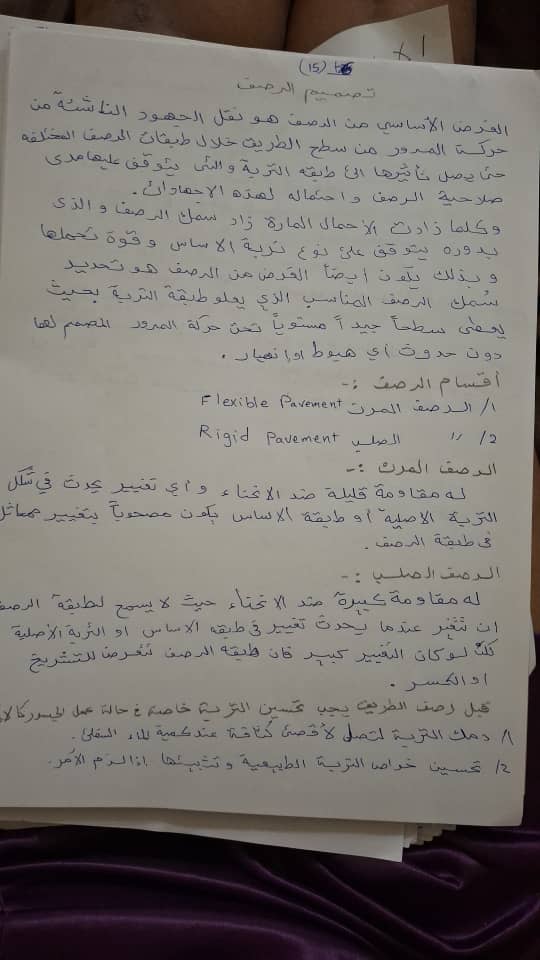 (15)
تصميم الرصف
الغرض الأساسي من الرصف هو نقل الجهود الناشئة من
حركة المرور من سطح الطريق خلال طبقات الرصف المختلفة
حتى يصل تأثيرها الى طبقه التربة والتى يتوقف عليها مدى
صلاحية الرصف واحتماله لهذه الاجهادات.
وكلما زادت الأحمال المارة زاد سمك الرصف والذى
بدوره يتوقف على نوع تربة الاساس وقوة تحملها
وبذلك يكون أيضاً الغرض من الرصف هو تحديد
سُمك الرصف المناسب الذي يعلو طبقة التربة بحيث
يعطى سطحاً جيداً مستوياً تحت حركة المرور المصمم لها
دون حدوث أي هبوط او انهيار.
أقسام الرصف :-
1/ الرصف المرن Flexible Pavement
2/ " الصلب Rigid Pavement
الرصف المرن :-
له مقاومة قليلة ضد الانحناء و أي تغيير يحدث في شكل
التربة الاصلية أو طبقة الاساس يكون مصحوباً بتغيير مماثل
فى طبقة الرصف.
الرصف الصلب :-
له مقاومة كبيرة ضد الانحناء حيث لا يسمح لطبقة الرصف
ان تتغير عندما يحدث تغيير فى طبقه الاساس او التربة الأصلية
لو كان التغيير كبير فان طبقه الرصف تتعرض للتشريخ
او الكسر.
قبل رصف الطريق يجب تحسين التربة خاصة فى حالة عمل الجسور
1/ دمك التربة لتصل لأقصى كثافة عند كمية الماء المثلى.
2/ تحسين خواص التربة الطبيعية وتثبيتها اذا لزم الأمر.